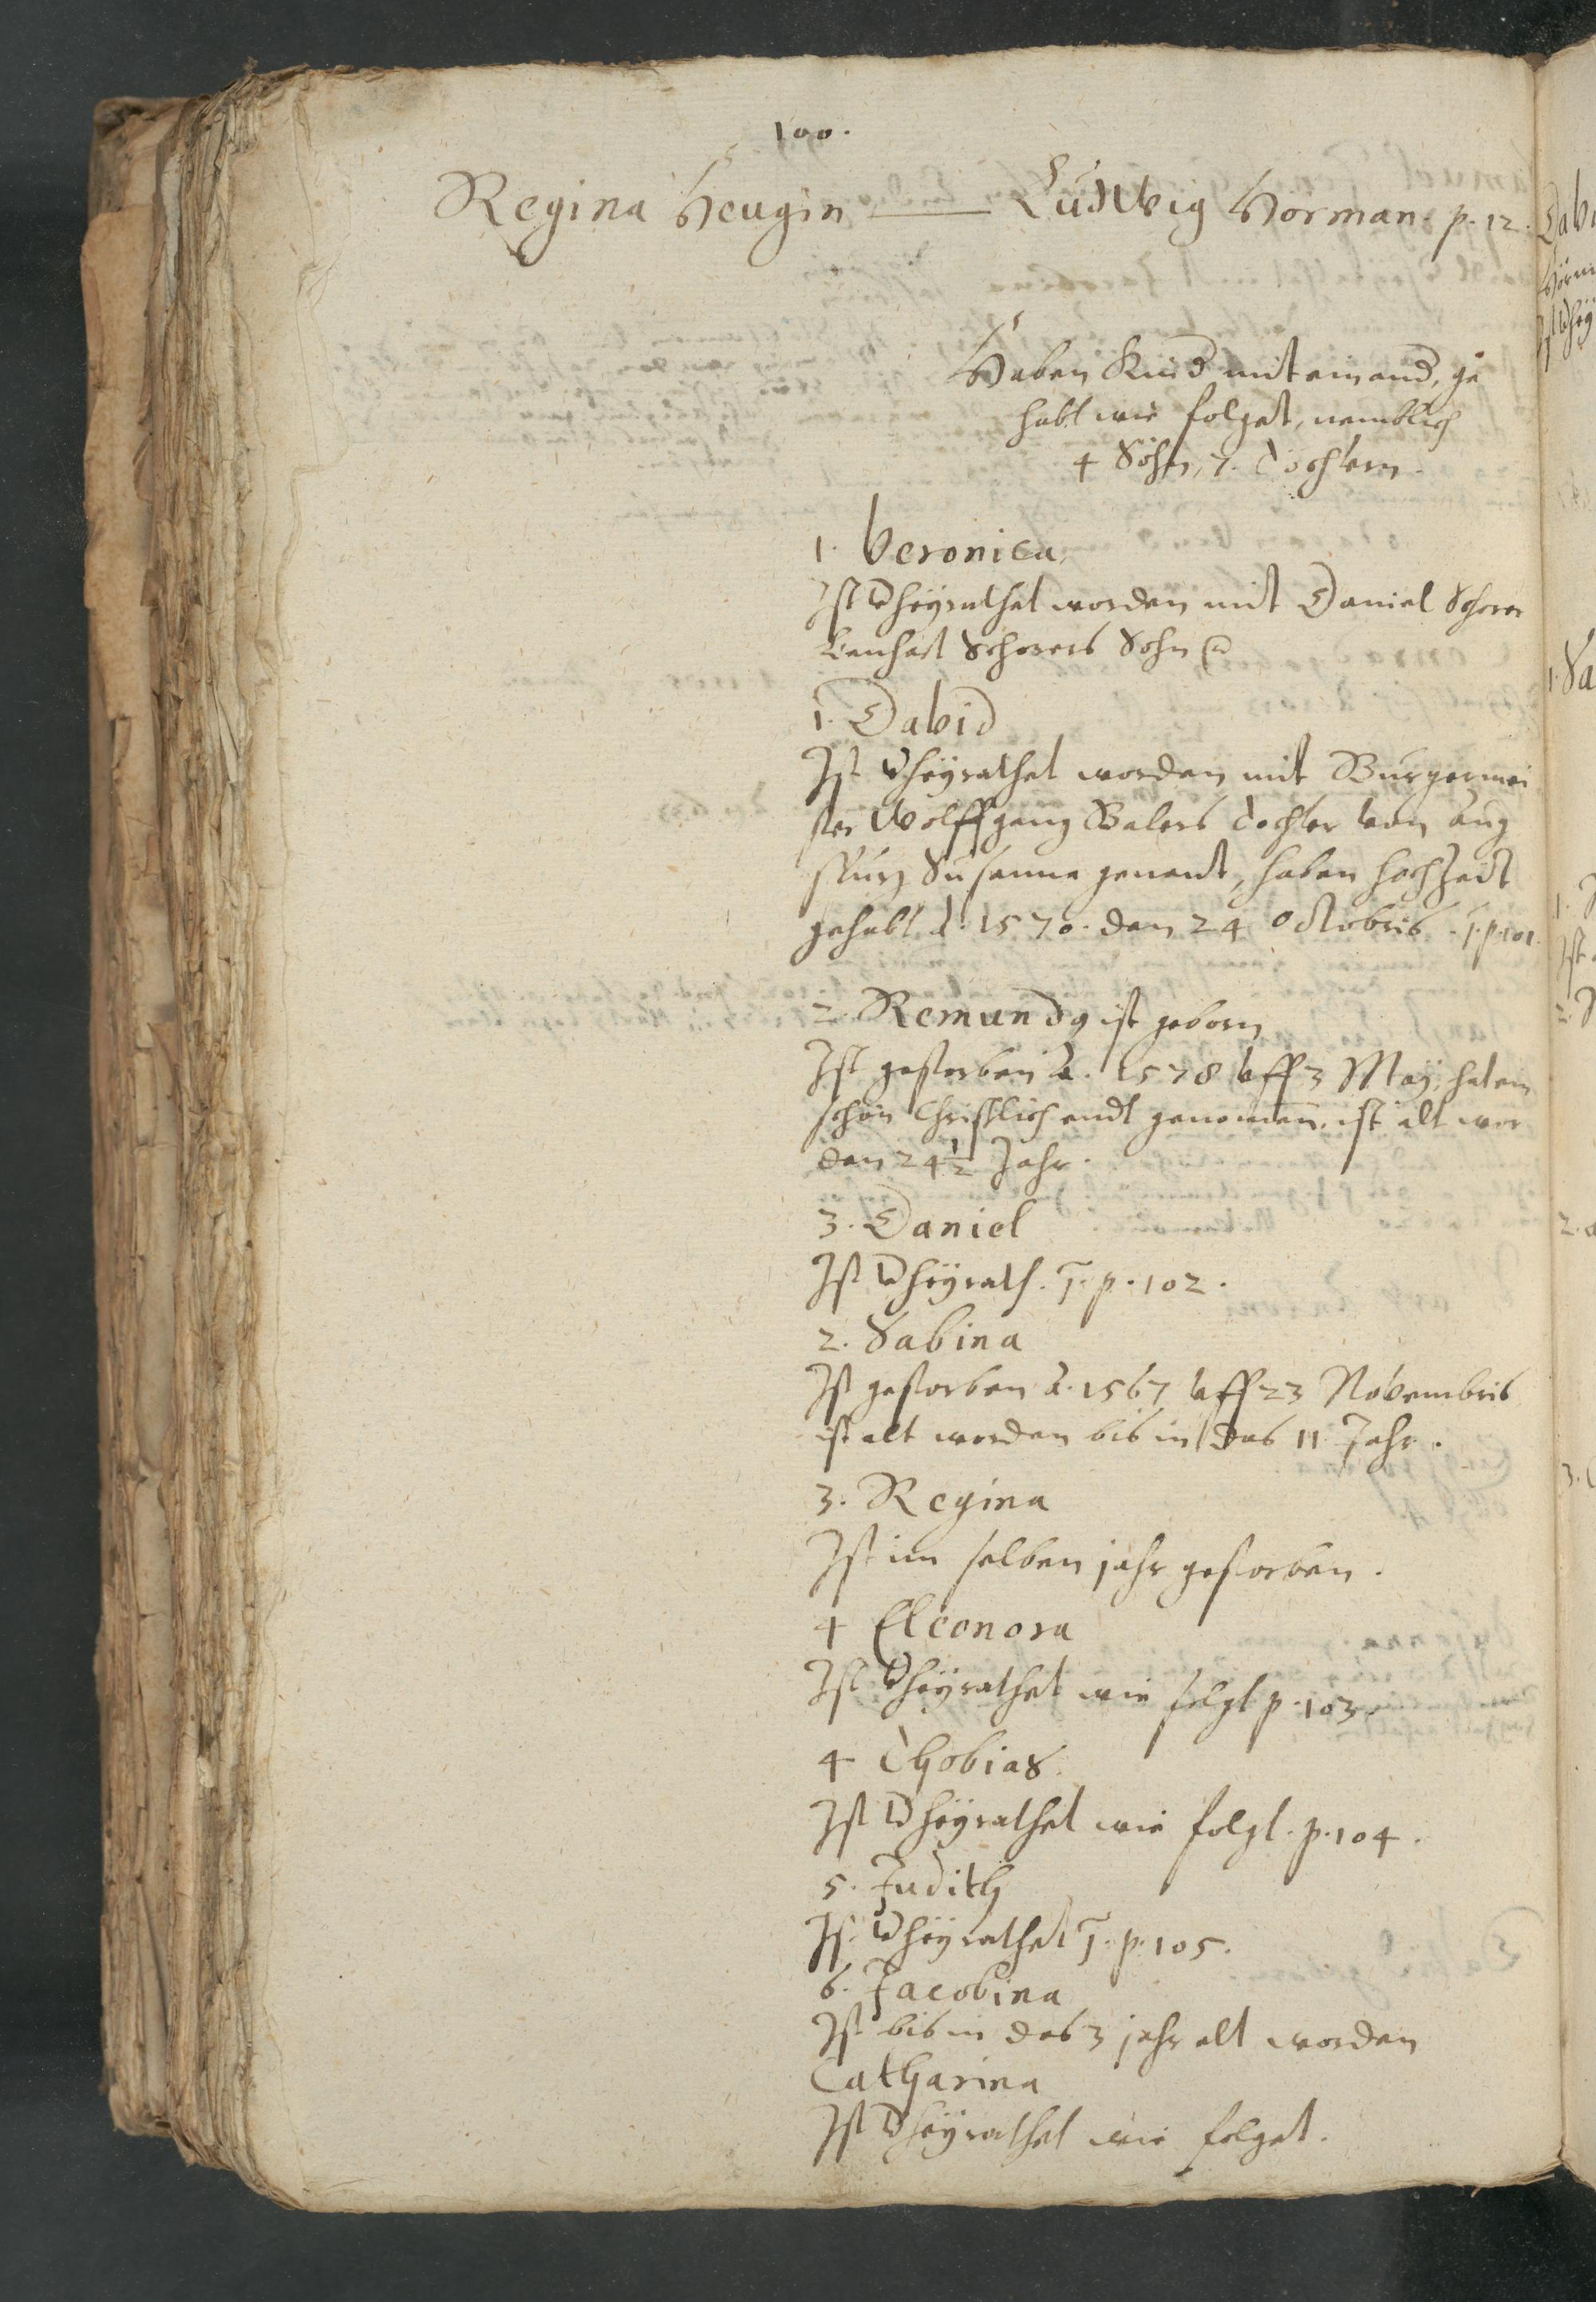 100.
Regina Heugin — Ludwig Hörman. p. 12.
Haben Kind mit einand, ge
habt wie folget, nemblich
4 Söhn, 7. Töchtern.
1. Veronica,
Ist vheÿrathet worden mit Daniel Schorer
Lenhart Schorers Sohn
1. David
Ist vheÿrathet worden mit Burgermei
ster Wolffgang Balers Tochter von Aug
spurg Susanna genandt, haben hochzeit
gehabt A. 1570. den 24 Octobris. f. p. 101.
2. Remund9 ist geborn
Ist gestorben A. 1578 vff 3 Maÿ, hat ein
schön Christlich endt genomen, ist alt wor
den 24½ Jahr.
3. Daniel
Ist vheÿrath. f. p. 102.
2. Sabina
Ist gestorben A. 1567 vff 23 Novembris
ist alt worden bis in das 11 Jahr.
3. Regina
Ist im selben jahr gestorben.
4 Eleonora
Ist vheÿrathet wie folgt p. 103.
4 Thobias.
Ist vheÿrathet wie folgt. p. 104.
5. Judith
Ist vheÿrathet f. p. 105.
6. Jacobina
Ist bis in das 3 jahr alt worden
Catharina
Ist vheÿrathet wie folget.